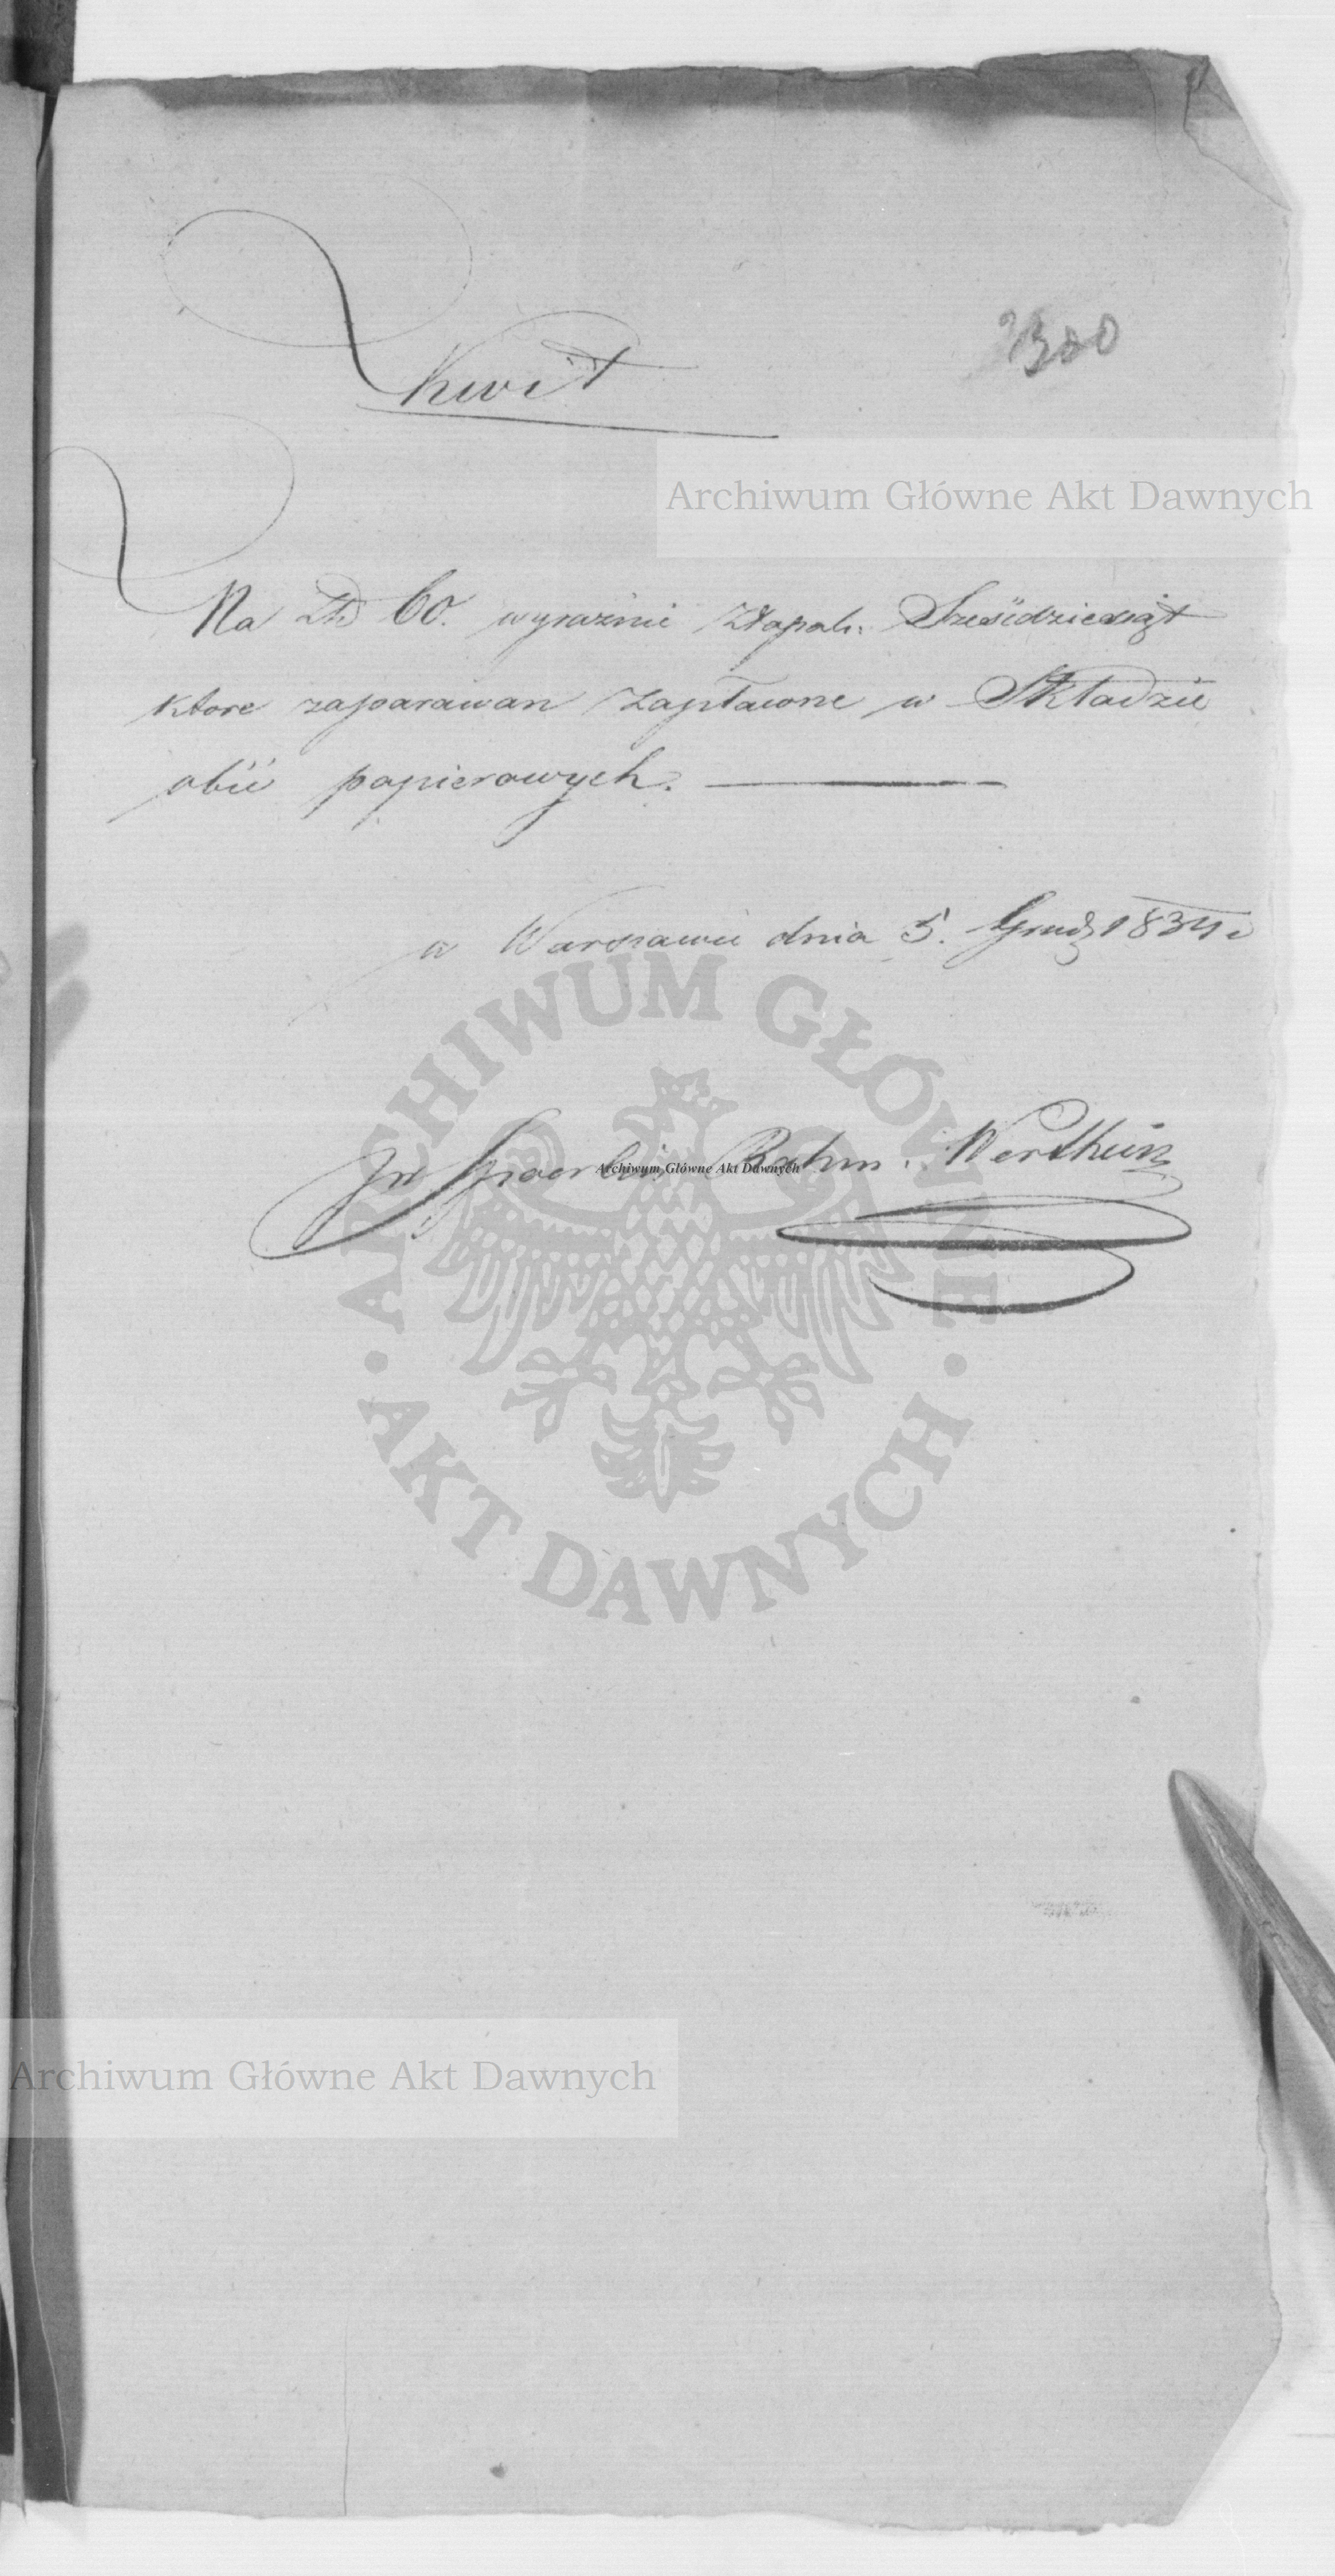 Kwit
300
Archiwum Główne Akt Dawnych
Na Zł. 60. wyraźnie Złapol. Sześćdziesiąt
ktore zaparawan zapłacone w Składzie
obić papierowych.
w Warszawie dnia 5. Grudz 1834
ARCHIWUM GŁÓWNE AKT DAWNYCH
Rahm. Wertheim
Archiwum Główne Akt Dawnych
Archiwum Główne Akt Dawnych